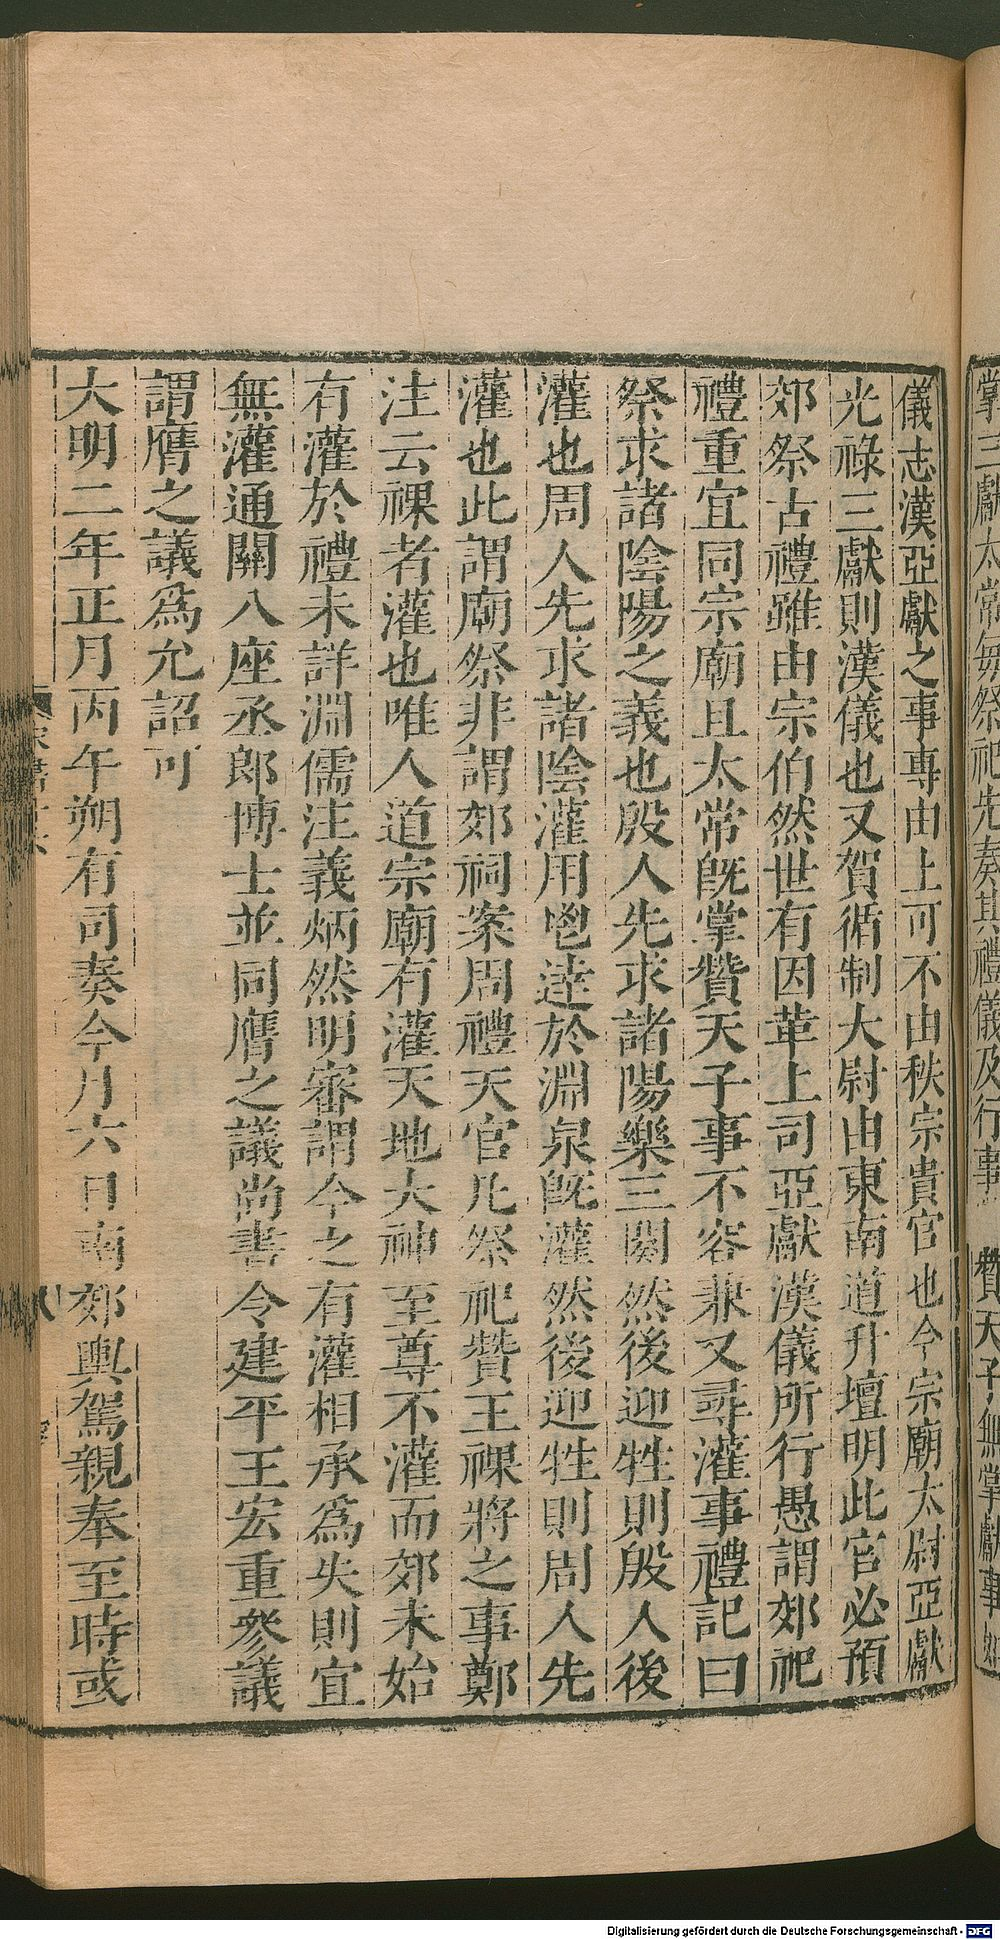 掌三獻太常每祭祀先奏其禮儀及行事 贊天子無掌獻事如
儀志漢亞獻之事專由上可不由秩宗貴官也今宗廟太尉亞獻
光祿三獻則漢儀也又賀循制大尉由東南道升壇明此官必預
郊祭古禮雖由宗伯然世有因革上司亞獻漢儀所行愚謂郊祀
禮重宜同宗廟且太常旣掌贊天子事不容兼又尋灌事禮記曰
祭求諸陰陽之義也殷人先求諸陽樂三闋然後迎牲則殷人後
灌也周人先求諸陰灌用鬯達於淵泉旣灌然後迎牲則周人先
灌也此謂廟祭非謂郊祠案周禮天官凡祭祀贊王祼將之事鄭
注云祼者灌也唯人道宗廟有灌天地大神至尊不灌而郊未始
有灌於禮未詳淵儒注義炳然明審謂今之有灌相承爲失則宜
無灌通關八座丞郎博士並同膺之議尚書令建平王宏重參議
謂膺之議爲允詔可
大明二年正月丙午朔有司奏今月六日南郊輿駕親奉至時或
八
Digitalisierung gefördert durch die Deutsche Forschungsgemeinschaft - DFG